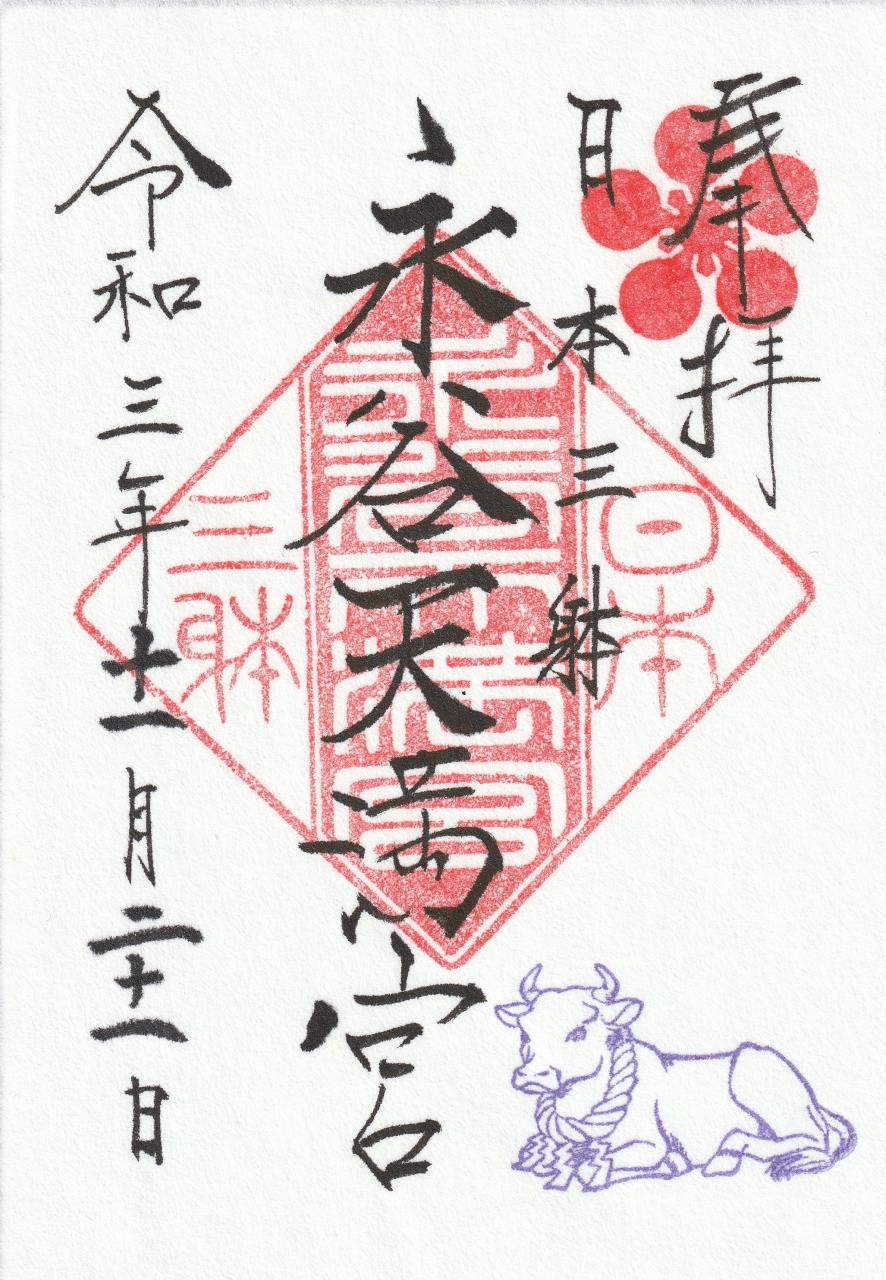 奉拝
日本三躰
永谷天満宮
令和三年十一月二十一日
日本
永谷天満宮
三躰